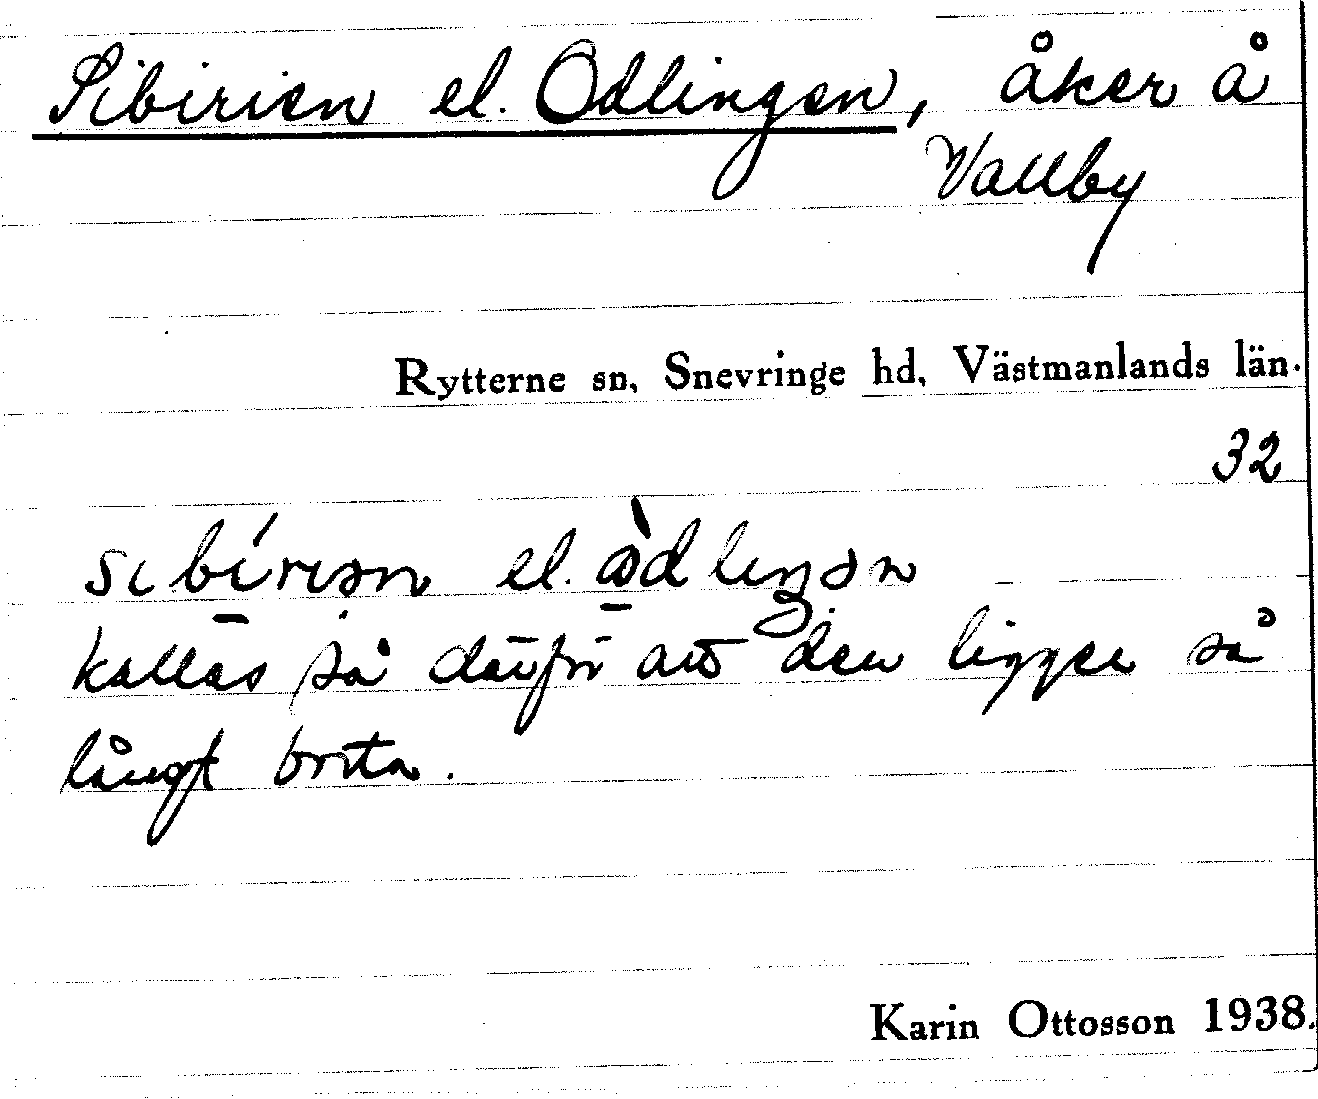 Sibirien el. Odlingen, åker å
Vallby
Rytterne sn, Snevringe hd, Västmanlands län.
32
sibíriən el.
kallas så därför att den ligger så
långt borta.
Karin Ottosson 1938.